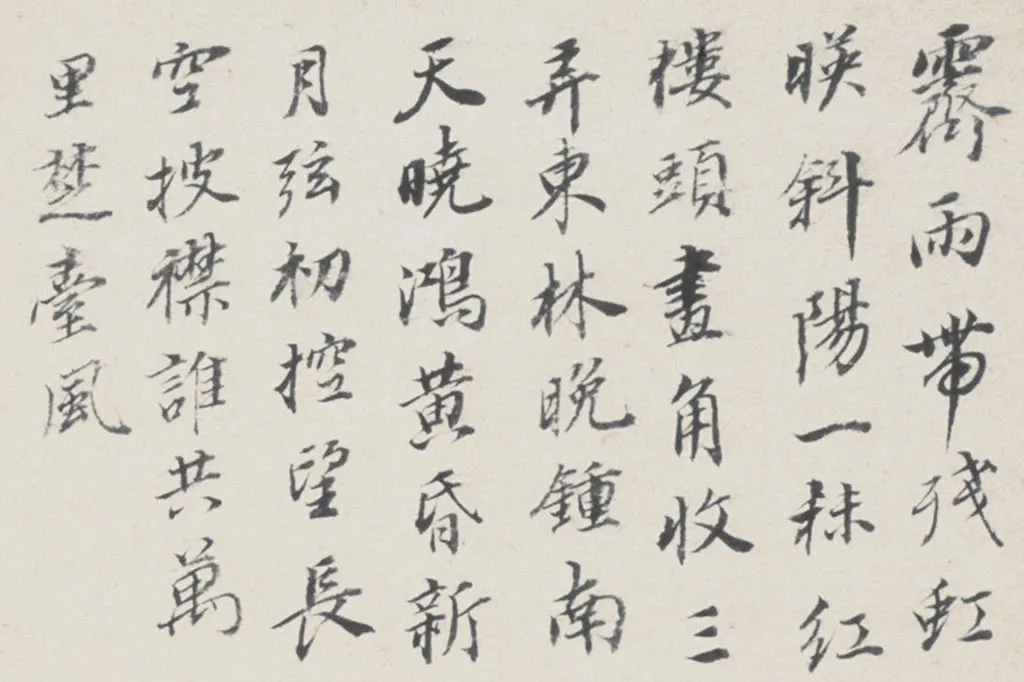 霽雨帶殘虹
映斜陽一抹紅
樓頭畫角收三
弄東林晚鍾南
天曉鴻黃昏新
月弦初控望長
空披襟誰共萬
里楚臺風